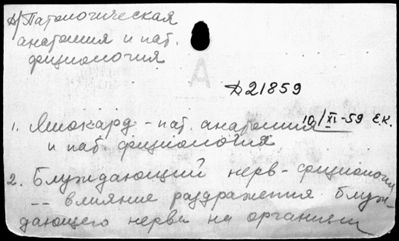 д/ Патологическая
анатомия и пат.
физиология
Д21859
10/XI-59 Е.К.
1. Миокард - пат. анатомия
и пат. физиология
2. Блуждающий нерв - физиология
-- влияние раздражения блуж-
дающего нерва на организм